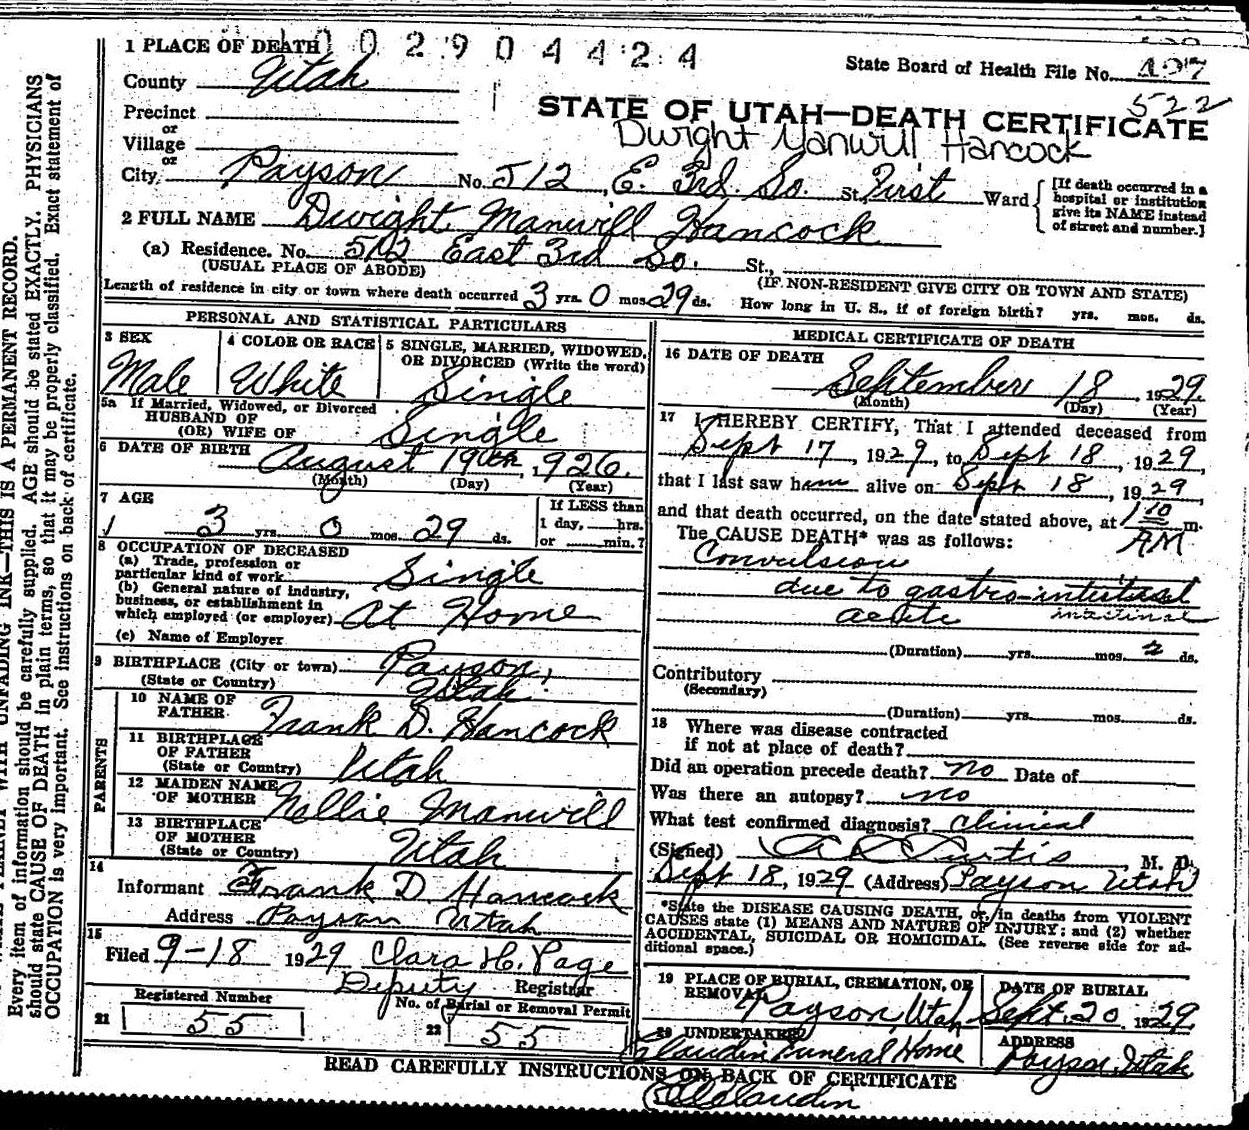 1 PLACE OF DEATH 0 0 2 9 0 4 4 2 4
State Board of Health File No. 497
County Utah
522
Precinct
STATE OF UTAH—DEATH CERTIFICATE
or
Village
Dwight Manwill Hancock
or
City Payson No. 512, E. 3rd. So. St. First Ward
[If death occurred in a
hospital or institution
give its NAME instead
of street and number.]
2 FULL NAME Dwight Manwill Hancock
(a) Residence. No. 512 East 3rd So. St.,
(USUAL PLACE OF ABODE) (IF NON-RESIDENT GIVE CITY OR TOWN AND STATE)
Length of residence in city or town where death occurred 3 yrs. 0 mos. 29 ds. How long in U. S., if of foreign birth? yrs. mos. ds.
PERSONAL AND STATISTICAL PARTICULARS
3 SEX
Male
4 COLOR OR RACE
White
5 SINGLE, MARRIED, WIDOWED,
OR DIVORCED (Write the word)
Single
5a If Married, Widowed, or Divorced
HUSBAND OF
(OR) WIFE OF Single
6 DATE OF BIRTH August 19th, 1926.
(Month) (Day) (Year)
7 AGE
3 yrs. 0 mos. 29 ds.
If LESS than
1 day, hrs.
or min.?
8 OCCUPATION OF DECEASED
(a) Trade, profession or
particular kind of work Single
(b) General nature of industry,
business, or establishment in
which employed (or employer) At Home
(c) Name of Employer
9 BIRTHPLACE (City or town) Payson,
(State or Country) Utah
PARENTS
10 NAME OF
FATHER Frank D. Hancock
11 BIRTHPLACE
OF FATHER
(State or Country) Utah
12 MAIDEN NAME
OF MOTHER Nellie Manwill
13 BIRTHPLACE
OF MOTHER
(State or Country) Utah
14
Informant Frank D. Hancock
Address Payson Utah
15
Filed 9-18 1929 Clara H. Page
Deputy Registrar
Registered Number
21 55
No. of Burial or Removal Permit
22 55
MEDICAL CERTIFICATE OF DEATH
16 DATE OF DEATH
September 18, 1929.
(Month) (Day) (Year)
17 I HEREBY CERTIFY, That I attended deceased from
Sept 17, 1929, to Sept 18, 1929,
that I last saw him alive on Sept 18, 1929
and that death occurred, on the date stated above, at 1 10 m.
AM
The CAUSE DEATH* was as follows:
Convulsion
due to gastro-intestinal
acute intestinal
(Duration) yrs. mos. 2 ds.
Contributory
(Secondary)
(Duration) yrs. mos. ds.
18 Where was disease contracted
if not at place of death?
Did an operation precede death? no Date of
Was there an autopsy? no
What test confirmed diagnosis? Clinical
(Signed) Curtis, M. D.
Sept 18, 1929 (Address) Payson Utah
*State the DISEASE CAUSING DEATH, or, in deaths from VIOLENT
CAUSES state (1) MEANS AND NATURE OF INJURY; and (2) whether
ACCIDENTAL, SUICIDAL OR HOMICIDAL. (See reverse side for ad-
ditional space.)
19 PLACE OF BURIAL, CREMATION, OR
REMOVAL Payson, Utah
DATE OF BURIAL
Sept. 20, 1929.
20 UNDERTAKER
Claudin Funeral Home
ADDRESS
Payson, Utah
READ CAREFULLY INSTRUCTIONS ON BACK OF CERTIFICATE
Claudin
INK—THIS IS A PERMANENT RECORD.
Every item of information should be carefully supplied. AGE should be stated EXACTLY. PHYSICIANS
should state CAUSE OF DEATH in plain terms, so that it may be properly classified. Exact statement of
OCCUPATION is very important. See instructions on back of certificate.